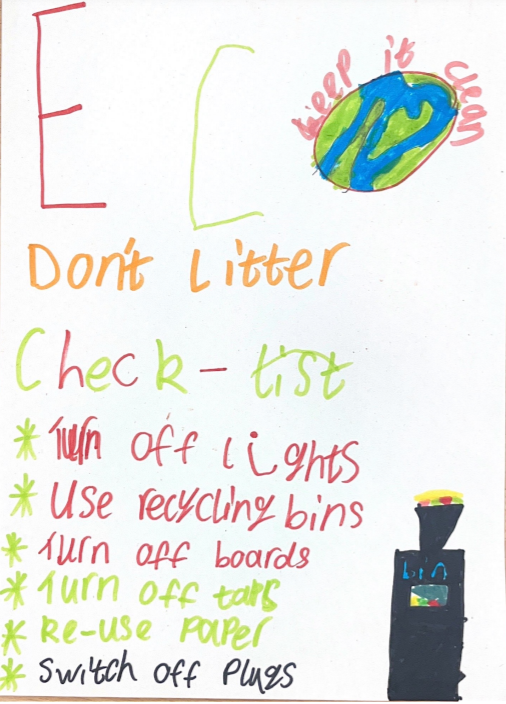 E C
keep it clean
Don't Litter
Check-list
* Turn off lights
* Use recycling bins
* Turn off boards
* Turn off taps
* Re-use paper
* Switch off plugs
bin